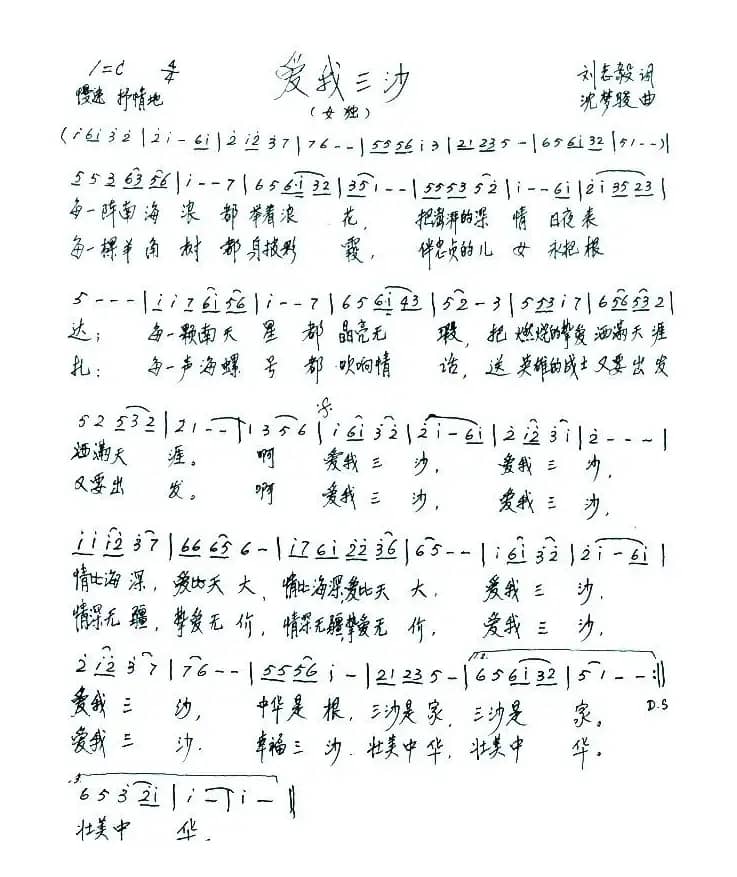 1=C 4/4 爱我三沙 刘志毅 词
慢速 抒情地 （女独） 沈梦骏 曲
(i 6i 3 2 | 2 i - 6i | 2 i2 3 7 | 76 - - | 5556 i 3 | 21 235 - | 656 i32 | 51 - -)|
553 63 56 | i - - 7 | 656·i 32 | 351 - - | 5553 52 | i - - 6i | 2i 35 23 |
每一阵南海 浪 都 举着浪 花， 把澎湃的深 情 日夜表
每一棵羊角 树 都 身披彩 霞， 伴忠贞的儿 女 永把根
5 - - - | i i 7 6i 56 | i - - 7 | 65 6i 43 | 52 - 3 | 553 i 7 | 6 56 53 2 |
达； 每一颗南天 星 都 晶亮无 瑕，把 燃烧的挚爱 洒满天涯
扎； 每一声海螺 号 都 吹响情 话，送 英雄的战士 又要出发
52 532 | 21 - - | 1 3 5 6 | i 6i 32 | 2 i - 6i | 2 i2 3i | 2 - - - |
洒满天 涯。 啊 爱我 三 沙， 爱我 三 沙，
又要出 发。 啊 爱我 三 沙， 爱我 三 沙，
i i i2 37 | 66 65 6 - | i7 6i 22 36 | 65 - - | i 6i 32 | 2 i - 6i |
情比海 深，爱比天 大，情比海深，爱比天 大， 爱我 三 沙，
情深无 疆，挚爱无 价，情深无疆，挚爱无 价， 爱我 三 沙，
2 i2 37 | 76 - - | 5556 i - | 21 235 - | 1.2. 656 i32 | 51 - - :||
爱我 三 沙， 中华是 根，三沙是 家，三沙是 家。 D.S
爱我 三 沙． 幸福三 沙．壮美中 华，壮美中 华。
3. 65 3 2i | i - - | i - ||
壮美中 华．